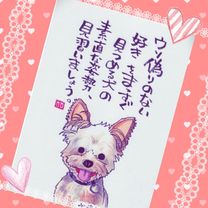 ウソ偽りのない
好き まっすぐ
見つめる犬の
素直な姿勢
見習いましょう